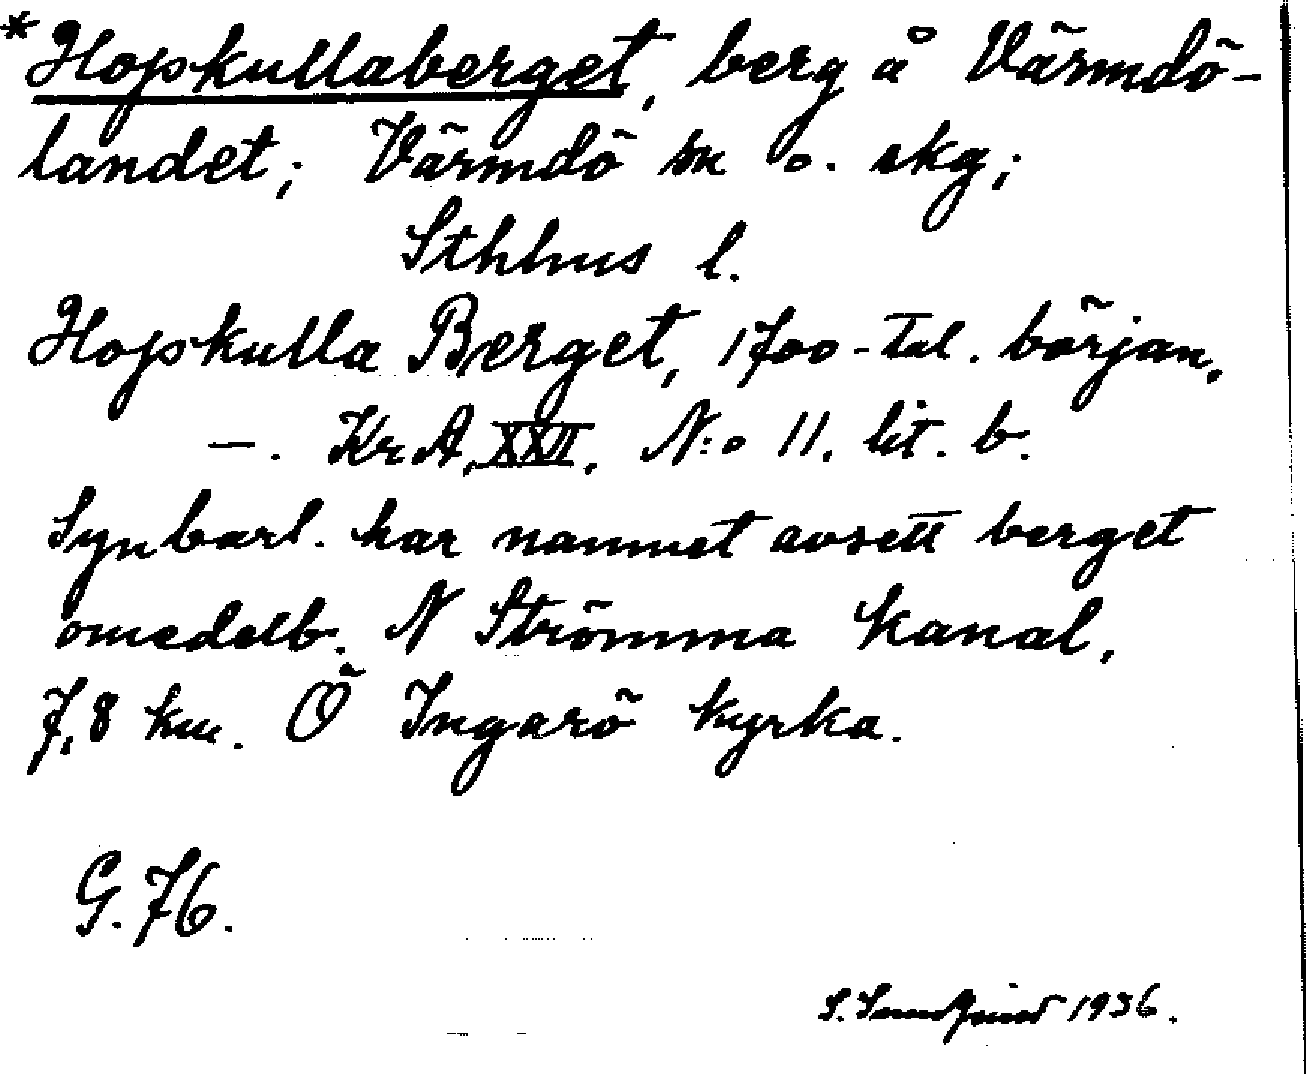 *Hopskullaberget, berg å Värmdö-
landet; Värmdö sn o. skg;
Sthlms l.
Hopskulla Berget, 1700-tal. början,
—. KrA, XXVI, N:o 11. lit. b.
Synbarl. har namnet avsett berget
omedelb. N Strömma kanal,
7,8 km. Ö Ingarö kyrka.
G. 76.
S. 1936.